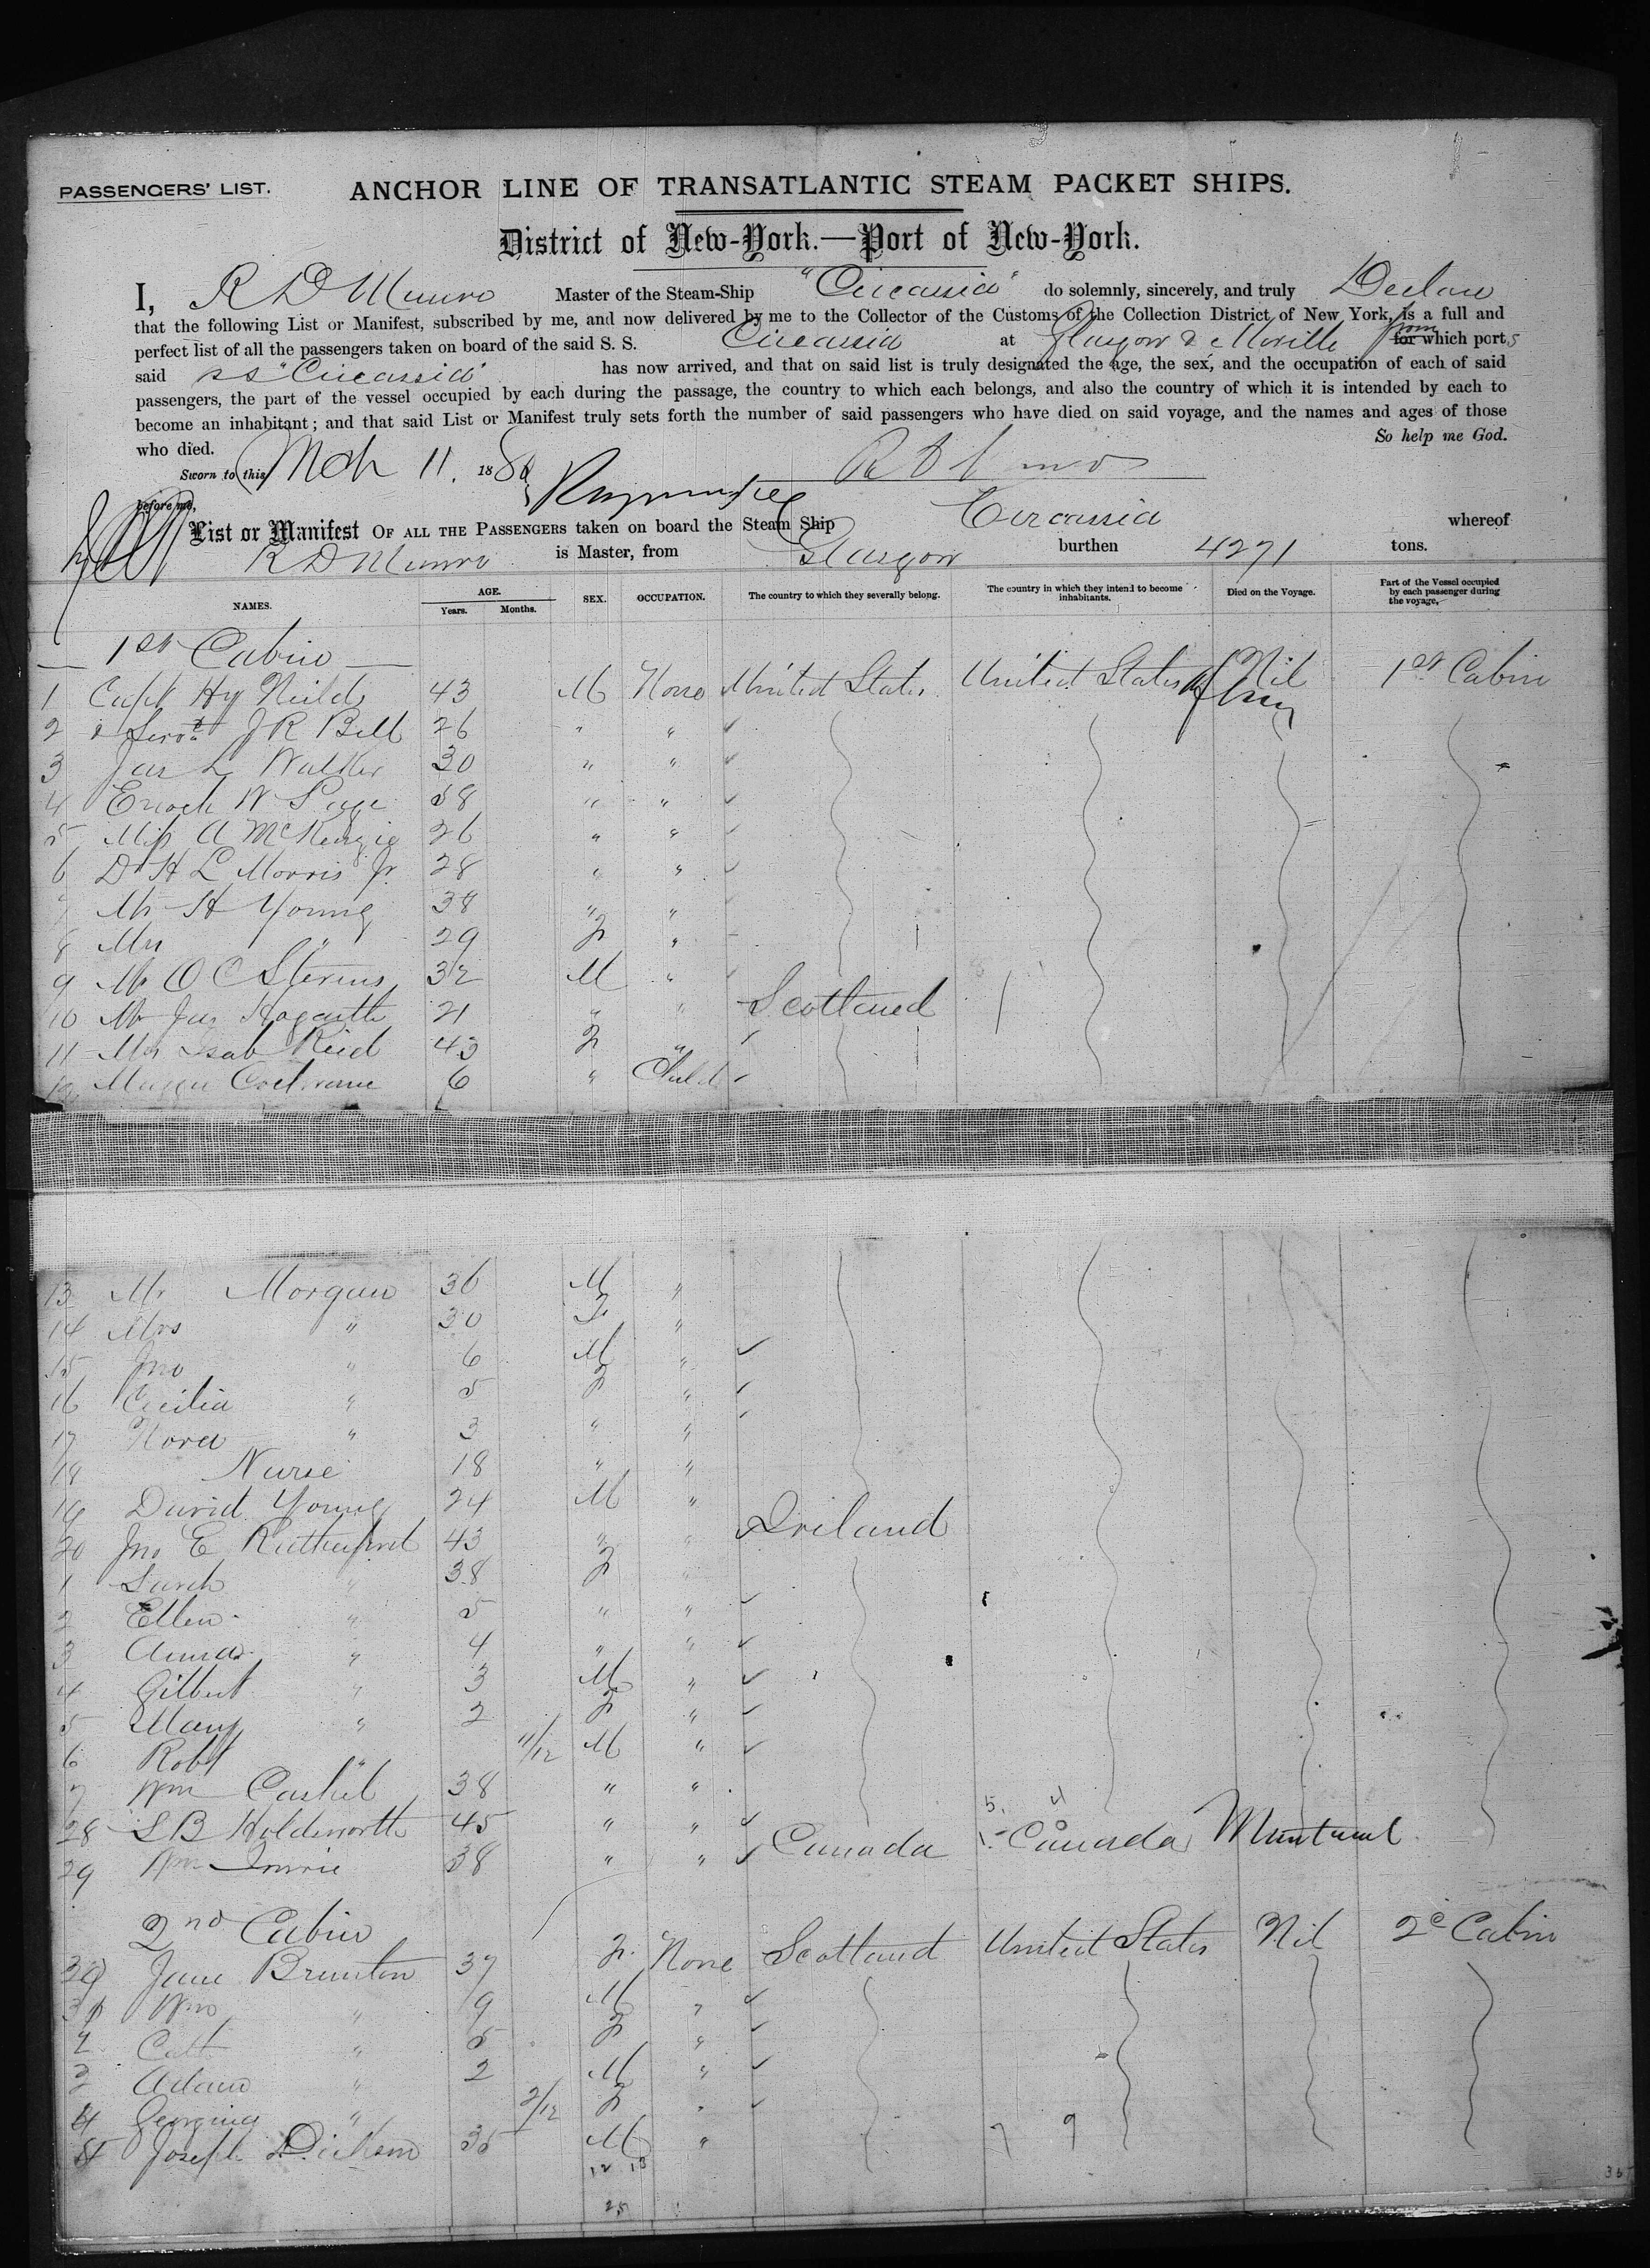 PASSENGERS' LIST.
ANCHOR LINE OF TRANSATLANTIC STEAM PACKET SHIPS.
District of New-York.—Port of New-York.
I, R D Munro Master of the Steam-Ship "Circassia" do solemnly, sincerely, and truly Declare
that the following List or Manifest, subscribed by me, and now delivered by me to the Collector of the Customs of the Collection District of New York, is a full and
perfect list of all the passengers taken on board of the said S. S. Circassia at Glasgow & Moville from for which ports
said SS "Circassia" has now arrived, and that on said list is truly designated the age, the sex, and the occupation of each of said
passengers, the part of the vessel occupied by each during the passage, the country to which each belongs, and also the country of which it is intended by each to
become an inhabitant; and that said List or Manifest truly sets forth the number of said passengers who have died on said voyage, and the names and ages of those
who died. So help me God.
Sworn to this Mch 11. 188 R D Munro
before me,
List or Manifest OF ALL THE PASSENGERS taken on board the Steam Ship Circassia whereof
R D Munro is Master, from Glasgow burthen 4271 tons.
NAMES. AGE. Years. Months. SEX. OCCUPATION. The country to which they severally belong. The country in which they intend to become inhabitants. Died on the Voyage. Part of the Vessel occupied by each passenger during the voyage.
1st Cabin
1 Capt Hy Neilds 43 M None United States United States Nil 1st Cabin
2 & Servt J R Bell 26 " "
3 Jas L Walker 30 " "
4 Enoch W Page 58 " "
5 Miss A McKenzie 26 " "
6 Dr H L Morris Jr 28 " "
7 Mr H Young 38 " "
8 Mrs " 29 F "
9 Mr O C Stevens 32 M "
10 Mr Jas Hogarth 21 " " Scotland
11 Mrs Isab Reid 43 F "
12 Maggie Cochrane 6 " Child
13 Mr Morgan 36 M "
14 Mrs " 30 F "
15 Jno " 6 M "
16 Cecilia " 5 F "
17 Nora " 3 " "
18 Nurse 18 " "
19 David Young 24 M "
20 Jno E Rutherford 43 " " Ireland
1 Sarah " 38 F "
2 Ellen " 5 " "
3 Anna " 4 " "
4 Gilbert " 3 M "
5 Mary " 2 F "
6 Robt " 11/12 M "
7 Wm Cashel 38 " "
28 S B Holdsworth 45 " " Canada Canada Montreal
29 Wm Imrie 38 " "
2nd Cabin
30 Jane Brunton 37 F. None Scotland United States Nil 2d Cabin
31 Wm " 9 M "
2 Cath " 5 F "
3 Adam " 2 M "
4 Georgina " 2/12 F "
5 Joseph Dickson 35 M " 7 9
12 13
25